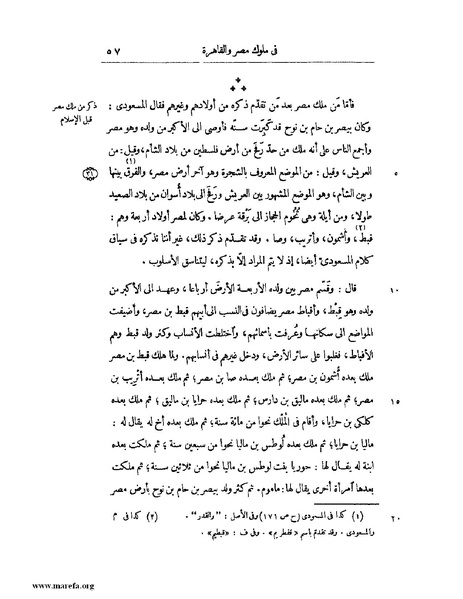 فى ملوك مصر والقاهرة ٥٧
ذكر من ملك مصر
قبل الإسلام
فأما مَن ملك مصر بعد مَن تقدّم ذكره من أولادهم وغيرهم فقال المسعودى :
وكان بيصر بن حام بن نوح قد كَبِرَت سنّه فأوصى الى الأكبر من ولده وهو مصر
وأجمع الناس على أنه ملك من حدّ رَفَح من أرض فلسطين من بلاد الشأم، وقيل: من
٥ العريش، وقيل : من الموضع المعروف بالشجرة وهو آخر أرض مصر، والفرق (١) بينها
وبين الشأم، وهو الموضع المشهور بين العريش ورَفَح الى بلاد أُسوان من بلاد الصعيد
طولا، ومن أيلة وهى تُخُوم الحجاز الى بَرْقة عرضا . وكان لمصر أولاد أربعة وهم :
قبط (٢)، وأشمون، وأتريب، وصا . وقد تقدّم ذكر ذلك، غير أننا نذكره فى سياق
كلام المسعودىّ أيضا، إذ لا يتم المراد إلا بذكره، ليتناسق الأسلوب .
١٠ قال : وقَسَم مصر بين ولده الأربعة الأرضَ أرباعا ، وعهد الى الأكبر من
ولده وهو قِبْط، وأقباط مصر يضافون فى النسب الى أبيهم قبط بن مصر، وأضيفت
المواضع الى سكانها وعُرفت بأسمائهم، وآختلطت الأنساب وكثر ولد قبط وهم
الأقباط، فغلبوا على سائر الأرض، ودخل غيرهم فى أنسابهم. ولما هلك قبط بن مصر
ملك بعده أُشمون بن مصر؛ ثم ملك بعده صا بن مصر؛ ثم ملك بعده أتْريب بن
١٥ مصر؛ ثم ملك بعده ماليق بن دارس؛ ثم ملك بعده حرايا بن ماليق ؛ ثم ملك بعده
كلكى بن حرايا، وأقام فى المُلْك نحوا من مائة سنة؛ ثم ملك بعده أخ له يقال له :
ماليا بن حرايا؛ ثم ملك بعده لُوطس بن ماليا نحوا من سبعين سنة ؛ ثم ملكت بعده
ابنة له يقال لها : حوريا بنت لوطس بن ماليا نحوا من ثلاثين سنة؛ ثم ملكت
بعدها آمرأة أخرى يقال لها: ماموم. ثم كثر ولد بيصر بن حام بن نوح بأرض مصر
٢٠ (١) كذا فى المسعودى (ح ص ١٧١) وفى الأصل : "والقدر" . (٢) كذا فى م
والمسعودى . وقد تقدّم باسم «قفطريم» . وفى ف : «قبطيم» .
www.marefa.org